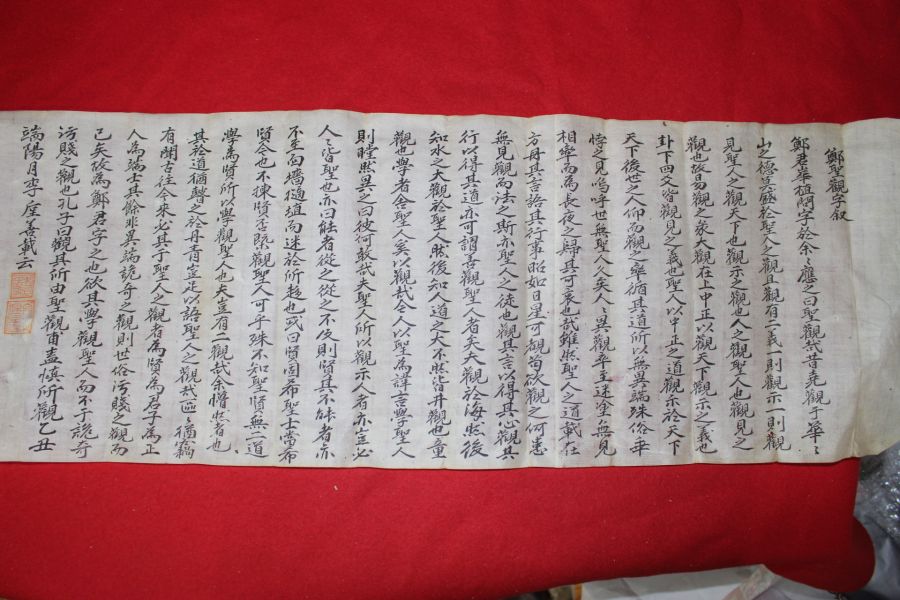 鄭聖觀字叙
鄭君華植問字於余々應之曰聖觀哉昔堯觀于華々
山之德莫盛於聖人之觀且觀有二義一則觀示一則觀
見聖人之觀天下也觀示之觀也人之觀聖人也觀見之
觀也故易觀之彖大觀在上中正以觀天下觀示之義也
卦下四爻皆觀見之義也聖人以中正之道觀示於天下
天下後世之人仰而觀之率循其道所以無異端殊俗乖
悖之見嗚呼世無聖人久矣人々異觀卒至迷塗無見
相率而為長夜之歸其可哀也哉雖然聖人之道載在
方冊其言語其行事昭如日星可觀苟欲觀之何患
無見觀而法之斯亦聖人之徒也觀其言以得其心觀其
行以得其道亦可謂善觀聖人者矣大觀於海然後
知水之大觀於聖人然後知人道之大不然皆井觀也童
觀也學者舍聖人奚以觀哉今人以聖為諱言學聖人
則瞠然異之曰彼何敢哉夫聖人所以觀示人者亦豈必
人々皆聖也亦曰能者從之從之不及則賢其不能者亦
不至面墻擿埴而迷於所趨也或曰賢固希聖士當希
賢今也不揀賢否旣觀聖人可乎殊不知聖賢無二道
學為賢所以學觀聖人也夫豈有二觀哉余懵然者也
其於道猶瞽之於丹靑豈足以語聖人之觀哉區々猶竊
有聞古往今來必其于聖人之觀者為賢為君子為正
人為端士其餘非異端詭奇之觀則世俗汚賤之觀而
已矣故為鄭君字之也欲其學觀聖人而不于詭奇
汚賤之觀也孔子曰觀其所由聖觀甫盍愼所觀乙丑
端陽月李 喜載云